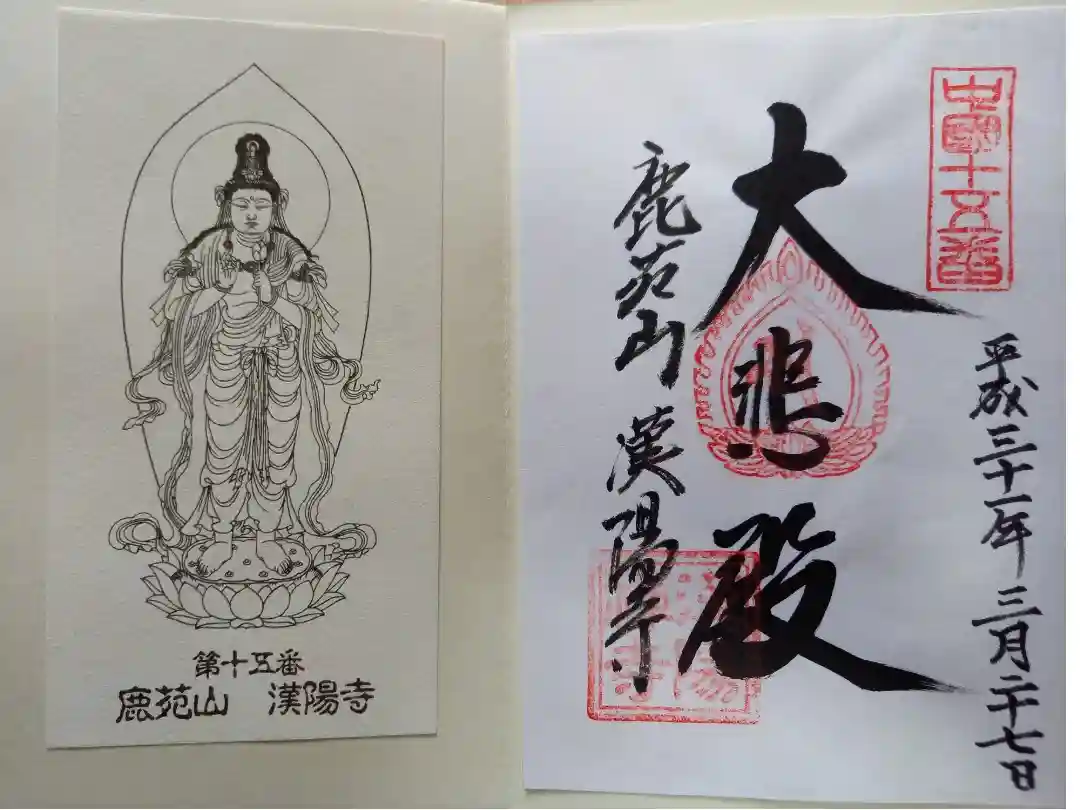 第十五番
鹿苑山 漢陽寺
中國十五番
平成三十一年 三月二十七日
大悲殿
鹿苑山 漢陽寺